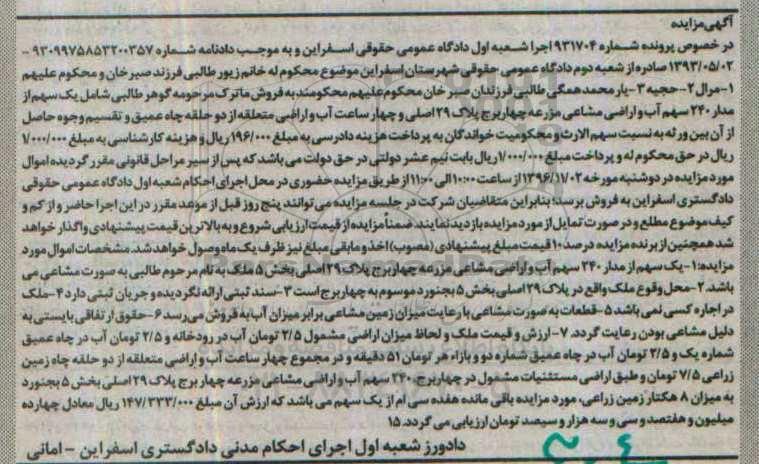 آگهی مزایده
در خصوص پرونده شماره ۹۳۱۷۰۴ اجرا شعبه اول دادگاه عمومی حقوقی اسفراین و به موجب دادنامه شماره ۹۳۰۹۹۷۵۸۵۳۲۰۰۳۵۷ -
۱۳۹۳/۰۵/۰۲ صادره از شعبه دوم دادگاه عمومی حقوقی شهرستان اسفراین موضوع محکوم له خانم زیور طالبی فرزند صبرخان و محکوم علیهم
۱-مرال ۲-حجیه ۳-یار محمد همگی طالبی فرزندان صبر خان محکوم علیهم محکومند به فروش ماترک مرحومه گوهر طالبی شامل یک سهم از
مدار ۲۴۰ سهم آب و اراضی مشاعی مزرعه چهاربرج پلاک ۲۹ اصلی و چهار ساعت آب و اراضی متعلقه از دو حلقه چاه عمیق و تقسیم وجوه حاصل
از آن بین ورثه به نسبت سهم الارث و محکومیت خواندگان به پرداخت هزینه دادرسی به مبلغ ۱۹۶/۰۰۰ ریال و هزینه کارشناسی به مبلغ ۱/۰۰۰/۰۰۰
ریال در حق محکوم له و پرداخت مبلغ ۱/۰۰۰/۰۰۰ ریال بابت نیم عشر دولتی در حق دولت می باشد که پس از سیر مراحل قانونی مقرر گردیده اموال
مورد مزایده در دوشنبه مورخه ۱۳۹۶/۱۱/۰۲ از ساعت ۱۰:۰۰ الی ۱۱:۰۰ از طریق مزایده حضوری در محل اجرای احکام شعبه اول دادگاه عمومی حقوقی
دادگستری اسفراین به فروش برسد؛ بنابراین متقاضیان شرکت در جلسه مزایده می توانند پنج روز قبل از موعد مقرر در این اجرا حاضر و از کم و
کیف موضوع مطلع و در صورت تمایل از مورد مزایده بازدید نمایند. ضمناً مزایده از قیمت ارزیابی شروع و به بالاترین قیمت پیشنهادی واگذار خواهد
شد همچنین از برنده مزایده درصد ۱۰ قیمت مبلغ پیشنهادی (مصوب) اخذ و مابقی مبلغ نیز ظرف یک ماه وصول خواهد شد. مشخصات اموال مورد
مزایده: ۱-یک سهم از مدار ۲۴۰ سهم آب و اراضی مشاعی مزرعه چهاربرج پلاک ۲۹ اصلی بخش ۵ ملک به نام مرحوم طالبی به صورت مشاعی می
باشد. ۲-محل وقوع ملک واقع در پلاک ۲۹ اصلی بخش ۵ بجنورد موسوم به چهاربرج است ۳-سند ثبتی ارائه نگردیده و جریان ثبتی دارد ۴-ملک
در اجاره کسی نمی باشد ۵-قطعات به صورت مشاعی با رعایت میزان زمین مشاعی برابر میزان آبها به فروش می رسد ۶-حقوق ارتفاقی بایستی به
دلیل مشاعی بودن رعایت گردد. ۷-ارزش و قیمت ملک و لحاظ میزان اراضی مشمول ۲/۵ تومان آب در رودخانه و ۲/۵ تومان آب در چاه عمیق
شماره یک و ۲/۵ تومان آب در چاه عمیق شماره دو و بازاء هر تومان ۵۱ دقیقه و در مجموع چهار ساعت آب و اراضی متعلقه از دو حلقه چاه زمین
زراعی ۷/۵ تومان و طبق اراضی مستثنیات مشمول در چهاربرج ۲۴۰ سهم آب و اراضی مشاعی مزرعه چهار برج پلاک ۲۹ اصلی بخش ۵ بجنورد
به میزان ۸ هکتار زمین زراعی، مورد مزایده باقی مانده هفده سی ام از یک سهم می باشد که ارزش آن مبلغ ۱۴۷/۳۳۳/۰۰۰ ریال معادل چهارده
میلیون و هفتصد و سی و سه هزار و سیصد تومان ارزیابی می گردد. ۱۵
دادورز شعبه اول اجرای احکام مدنی دادگستری اسفراین - امانی